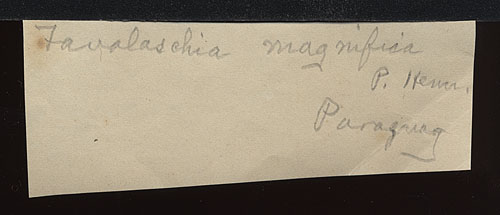 Favolaschia magnifica
P. Henn.
Paraguay